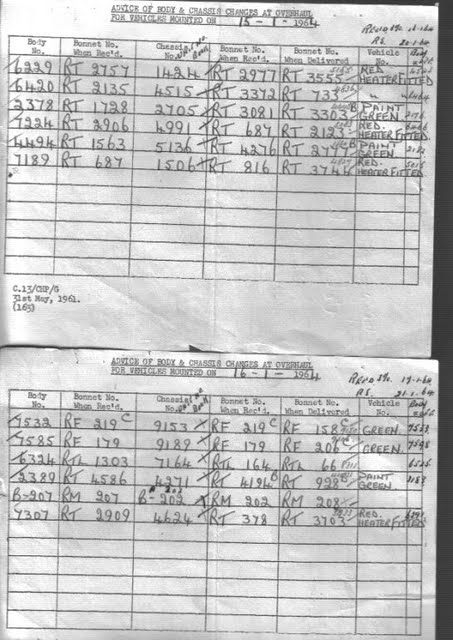 ADVICE OF BODY & CHASSIS CHANGES AT OVERHAUL
FOR VEHICLES MOUNTED ON 15 - 1 - 1964
Body No. Bonnet No. When Rec'd. Chassis No. Bonnet No. When Rec'd. Bonnet No. When Delivered Vehicle No.
6229 RT 2757 14214 RT 2977 RT 3555 RED. HEATER FITTED
6420 RT 2135 4515 RT 3372 RT 733 "
2378 RT 1728 2705 RT 3081 RT 3303 B PAINT GREEN 2176
7224 RT 2906 4991 RT 687 RT 2123 RED. HEATER FITTED
4494 RT 1563 5136 RT 4276 RT 2777 B PAINT GREEN
7189 RT 687 1506 RT 816 RT 3744 RED. HEATER FITTED
C.13/CHP/G
31st May, 1961.
(165)
ADVICE OF BODY & CHASSIS CHANGES AT OVERHAUL
FOR VEHICLES MOUNTED ON 16 - 1 - 1964
Body No. Bonnet No. When Rec'd. Chassis No. Bonnet No. When Rec'd. Bonnet No. When Delivered Vehicle No.
7532 RF 219 C 9153 RF 219 C RF 158 C GREEN
7585 RF 179 9189 RF 179 RF 206 GREEN.
6324 RTL 1303 7164 RTL 164 RTL 66
2389 RT 4586 4271 RT 4194 B RT 928 B PAINT GREEN
B-207 RM 207 B-202 RM 202 RM 208
7307 RT 2909 4624 RT 378 RT 3703 RED. HEATER FITTED